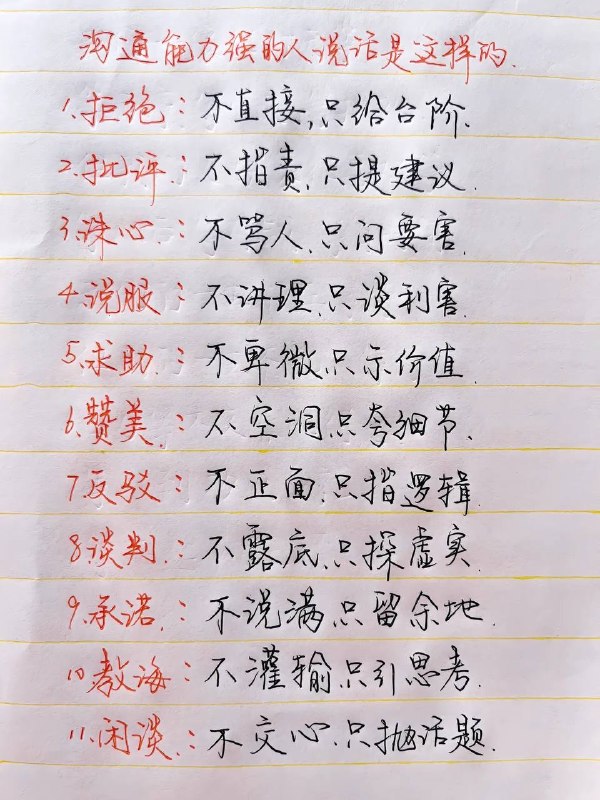 沟通能力强的人说话是这样的.
1.拒绝：不直接,只给台阶.
2.批评：不指责,只提建议.
3.诛心：不骂人.只问要害.
4.说服：不讲理.只谈利害.
5.求助.：不卑微.只示价值.
6.赞美.：不空洞.只夸细节.
7.反驳：不正面.只指逻辑.
8.谈判.：不露底.只探虚实.
9.承诺.：不说满.只留余地.
10.教海：不灌输.只引思考.
11.闲谈.：不交心.只抛话题.